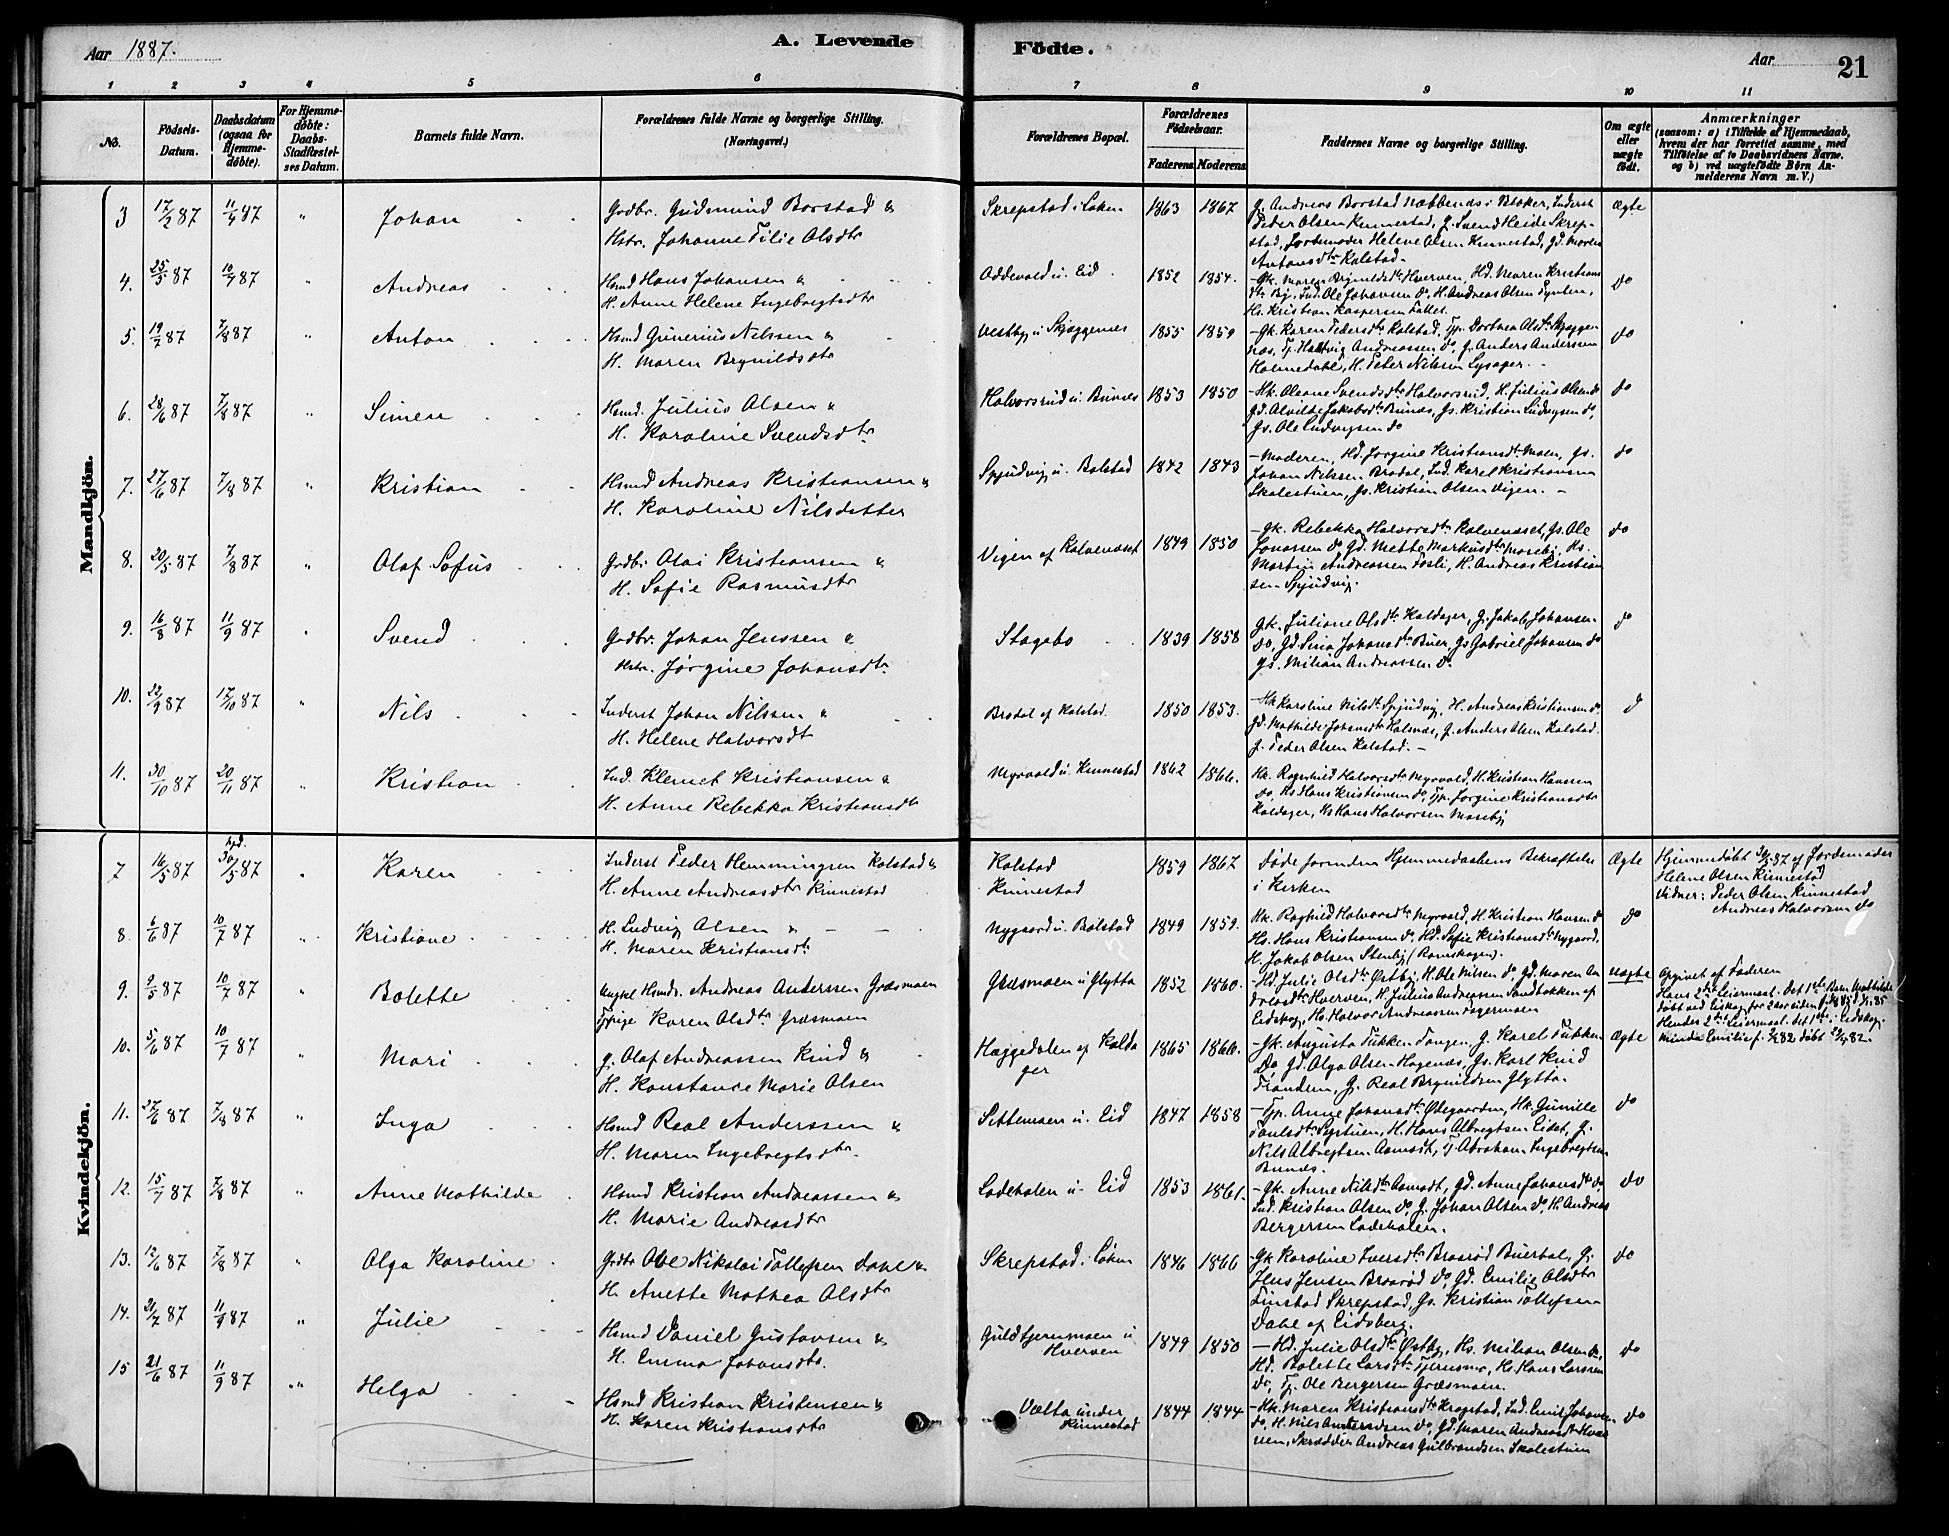 Aar 1887.
A. Levende
Födte.
Aar
21
1 2 3 4 5 6 7 8 9 10 11
No.
Födsels-Datum.
Daabsdatum (ogsaa for Hjemme-döbte).
For Hjemme-döbte: Daabs-Stadfæstel-ses Datum.
Barnets fulde Navn.
Forældrenes fulde Navne og borgerlige Stilling. (Næringsvei.)
Forældrenes Bopæl.
Forældrenes Födselsaar.
Faderens
Moderens
Faddernes Navne og borgerlige Stilling.
Om ægte eller uægte födt.
Anmærkninger
(saasom: a) i Tilfælde af Hjemmedaab,
hvem der har forrettet samme, med
Tilföielse af to Daabsvidners Navne.
og b) ved uægtefödte Börn An-
melderens Navn m. V.)
Mandkjön.
3 17/2 87 11/4 87 " Johan
Gbdbr. Gudmund Borstad &
Hstr. Johanne Tilie Olsdtr
Skrepstad i Løken 1863 1867
G. Andreas Borstad Nabbenes i Blaker, Inderst
Peder Olsen Kinnestad, G. Svend Heide Skrep-
stad, Jordemoder Helene Olsen Kinnestad, Gd. Maren
Antonsdtr Kolstad.
Ægte
4. 25/5 87 10/7 87 " Andreas
Hsmd Hans Johansen &
H. Anne Helene Ingebregtsdtr
Oddevold u. Eid 1852 1854.
- Gk. Maren Brynildsdtr Hverven, Hd. Maren Kristians
dtr By, Ind. Ole Johansen do, H. Andreas Olsen
Hs. Kristian Kaspersen
do
5. 19/7 87 7/8 87 " Anton
Hsmd Gunerius Nilssen &
H. Maren Brynildsdtr
Vestby u. Skjæggenes 1855 1859
- Gk. Karen Pedersdtr Kolstad, Tjp. Dorthea Olsdtr Skjæggenes, Tj. Hartvig Andreassen do, G. Anders Anderssen
Holmedahl, H. Peder Nilssen Lysager.
do
6. 28/6 87 7/8 87 " Simen
Hsmd. Julius Olsen &
H. Karoline Svendsdtr
Halvorsrud u. Bunes 1853 1850
- Hk. Oleane Svendsdtr Halvorsrud, H. Julius Olsen do
Gd. Alvilde Jakobsdtr Bunæs, Gs. Kristian Ludvigsen do,
Gs. Ole Ludvigsen do
do
7. 27/6 87 7/8 87 " Kristian
Hsmd Andreas Kristiansen &
H. Karoline Nilsdatter
Spjudvig u. Bolstad 1842 1843
- Moderen, Hd. Jorgine Kristiansdtr Moen, Gs.
Johan Nilssen Brodal, Ind. Karel Kristiansen
Skolestuen, Gs. Kristian Olsen Vigen. -
do
8. 20/5 87 7/8 87 " Olaf Sofus
Gbdbr. Olai Kristiansen &
H. Sofie Rasmusdtr
Vigen af Kolvenæset 1849 1850
- Gk. Rebekka Halvorsdtr Kolvenæset, Gs. Ole
Jonassen do, Gd. Mette Markusdtr Moseby, Hs.
Martin Andreassen Fosli, H. Andreas Kristian
sen Spjudvig.
do
9. 16/8 87 11/9 87 " Svend
Gbdbr. Johan Jenssen &
Hstr. Jørgine Johansdtr
Stagebo 1839 1858
Gk. Juliane Olsdtr Koldager, G. Jakob Johansen
do, Gd. Sina Johansdtr Buer, Gs. Gabriel Johansen do
Gs. Milian Andreassen do.
do
10. 22/9 87 17/10 87 " Nils
Inderst Johan Nilssen &
H. Helene Halvorsdtr
Brodal af Kolstad. 1850 1853.
- Hk Karoline Nilsdtr Spjudvig, H. Andreas Kristiansen do.
Gd. Mathilde Johansdtr Holsnæs, G. Anders Olsen Kolstad.
G. Peder Olsen Kolstad. -
d
11. 30/10 87 20/11 87 " Kristian
Ind. Klemet Kristiansen &
H. Anne Rebekka Kristiansdtr
Myrvold u. Kinnestad 1862 1866.
Hk. Ragnhild Halvorsdtr Myrvold, H. Kristian Hansen
do, Hs. Hans Kristiansen do, Tjp. Jorgine Kristiansdtr
Koldager, Hs. Hans Halvorsen Moseby
Kvindekjön.
7 16/5 87 hjd. 30/5 87 " Karen
Inderst Peder Hemmingsen Kolstad &
H. Anne Andreasdtr Kinnestad
Kolstad
Kinnestad
1859 1867
Døde forinden Hjemmedaabens Bekræftelse
i Kirken
Ægte
Hjemmedøbt 30/5 87 af Jordemoder
Helene Olsen Kinnestad
Vidner: Peder Olsen Kinnestad
Andreas Halvorsen do
8. 6/6 87 10/7 87 " Kristiane
H. Ludvig Olsen &
H. Maren Kristiansdtr
Nygaard u. Bolstad 1849 1859.
Hk. Ragnhild Halvorsdtr Myrvold, H. Kristian Hansen do
Hs. Hans Kristiansen do, Hd. Sofie Kristiansdtr Nygaard,
H. Jakob Olsen Stenby (Romskogen).
do
9. 9/5 87 10/7 87 " Bolette
Ungkl Hsmds. Andreas Anderssen Græsmoen
Tjpige Karen Olsdtr Græsmoen
Græsmoen u Glytta 1852 1860.
- Hd. Julie Olsdtr Østby, H. Ole Nilsen do, Gd. Maren An
dreasdtr Hverven, H. Julius Andreassen Sandbakken af
Eidskog, Hs. Halvor Andreassen Fagermoen
Uægte
Opgivet af Faderen
Hans 2det Leiermaal. Det 1ste Barn Mathilde
døbt ved Eidskog for 2 aar siden
Hendes 2det Leiermaal. Det 1ste i Eidskog.
Minda Emilie
10. 5/6 87 10/7 87 " Mari
G. Olaf Andreassen Kind &
H. Konstance Marie Olsen
Haggedalen af Kolda
ger
1865 1866.
- Gk. Augusta Tukken Tangen, G. Karel Tukken
do, Gd. Olga Olsen Hagenæs, Gs. Karl Kind
Trandem, G. Real Brynildsen Glytta.
Ægte
11. 27/6 87 7/8 87 " Inga
Hsmd Real Anderssen &
H. Maren Ingebregtsdtr.
Settemoen u. Eid 1847 1858
- Tjp. Anne Johansdtr Ødegaarden, Hk. Gunille
Paulsdtr H. Hans Albregtsen Eidet, G.
Nils Albregtsen Aamodt, Tj. Abraham Ingebregtsen
Bunæs.
do
12. 15/7 87 7/8 87 " Anne Mathilde
Hsmd Kristian Andreassen &
H. Marie Andreasdtr
Ladehalen u. Eid 1853 1861.
- Gk. Anne Nilsdtr Aamodt, Gd. Anne Johansdtr do
Ind. Kristian Olsen do, G. Johan Olsen do, H. Andreas
Bergersen Ladehalen.
do
13. 12/6 87 7/8 87 " Olga Karoline
Gbdbr Ole Nikolai Tollefsen Dahl &
H. Anette Mathea Olsdtr
Skrepstad i Løken 1846 1866
- Gk Karoline Iversdtr Braarød Buerbøl, G.
Jens Jensen Braarød do, Gd. Emilie Olsdtr
Finstad Skrepstad, Gs. Kristian Tollefsen
Dahl af Eidsberg.
do
14. 21/7 87 11/9 87 " Julie
Hsmd Daniel Gustavsen &
H. Emma Johansdtr
Guldtjernmoen u
Hverven
1849 1850
- Hd. Julie Olsdtr Østby, Hs. Milian Olsen do,
Hd. Bolette Larsdtr Tjernsmo, Hs. Hans Larssen
do, Tj. Ole Bergersen Græsmoen.
do
15 21/6 87 11/9 87 " Helga
Hsmd Kristian Kristensen &
H. Karen Kristiansdtr
Vælta under
Kinnestad
1844 1844
- Hk. Maren Kristiansdtr Krogstad, Ind. Emil Johansen
do, H. Nils Amundsen do, Gd. Maren Andreasdtr Hver
ven, Skrædder Andreas Gulbrandsen Skolestuen
do